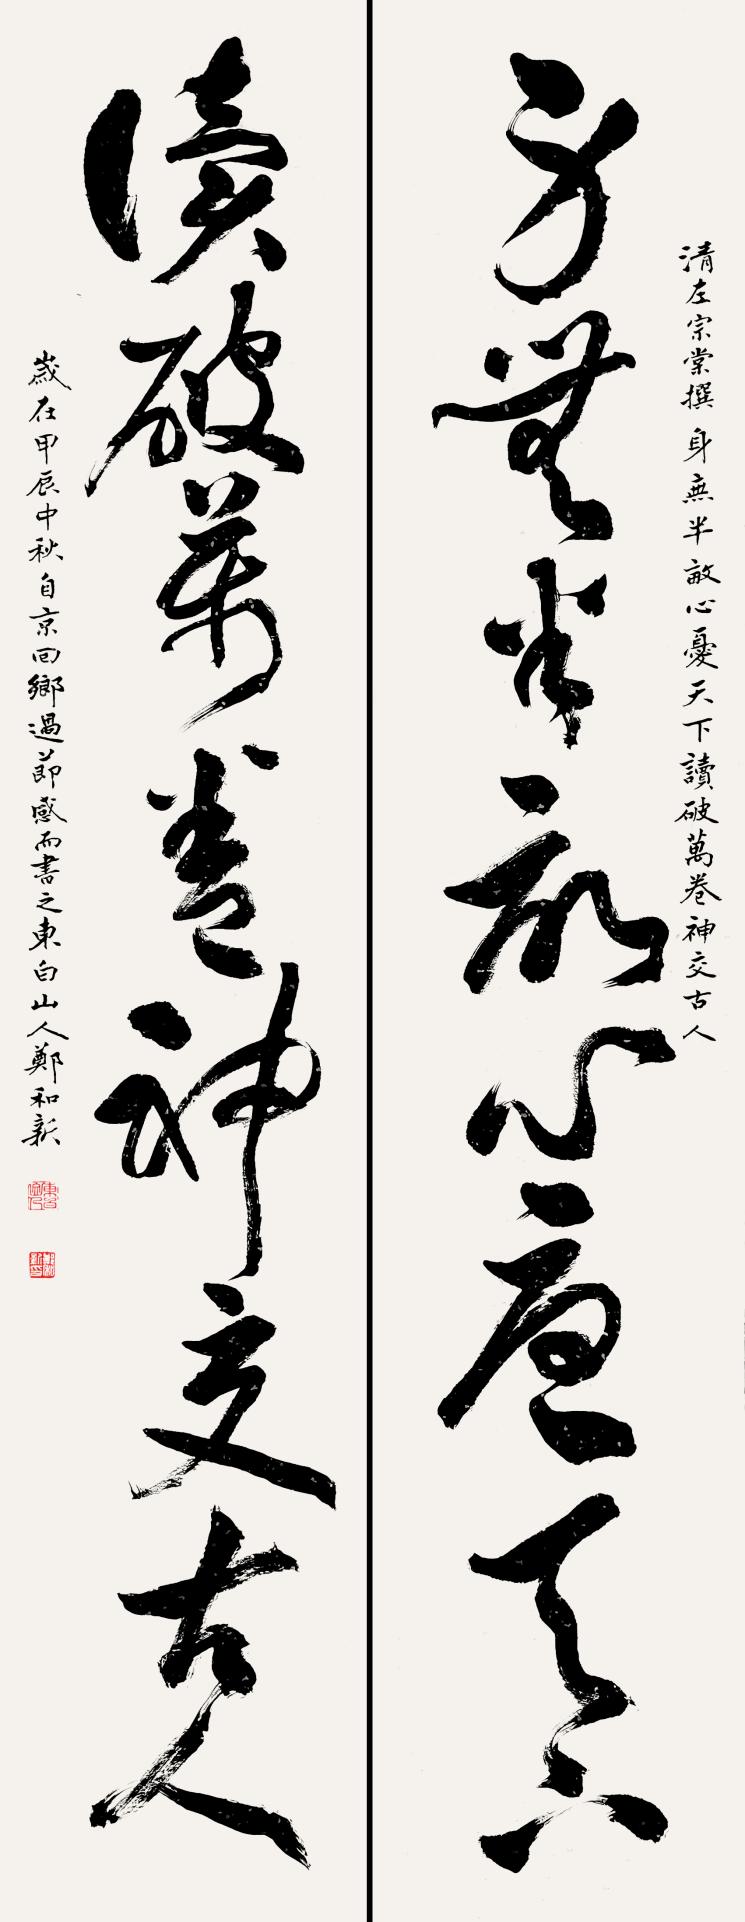 清左宗棠撰身無半畝心憂天下讀破萬卷神交古人
身無半畝心憂天下
讀破萬卷神交古人
歲在甲辰中秋自京回鄉過節感而書之東白山人鄭和新